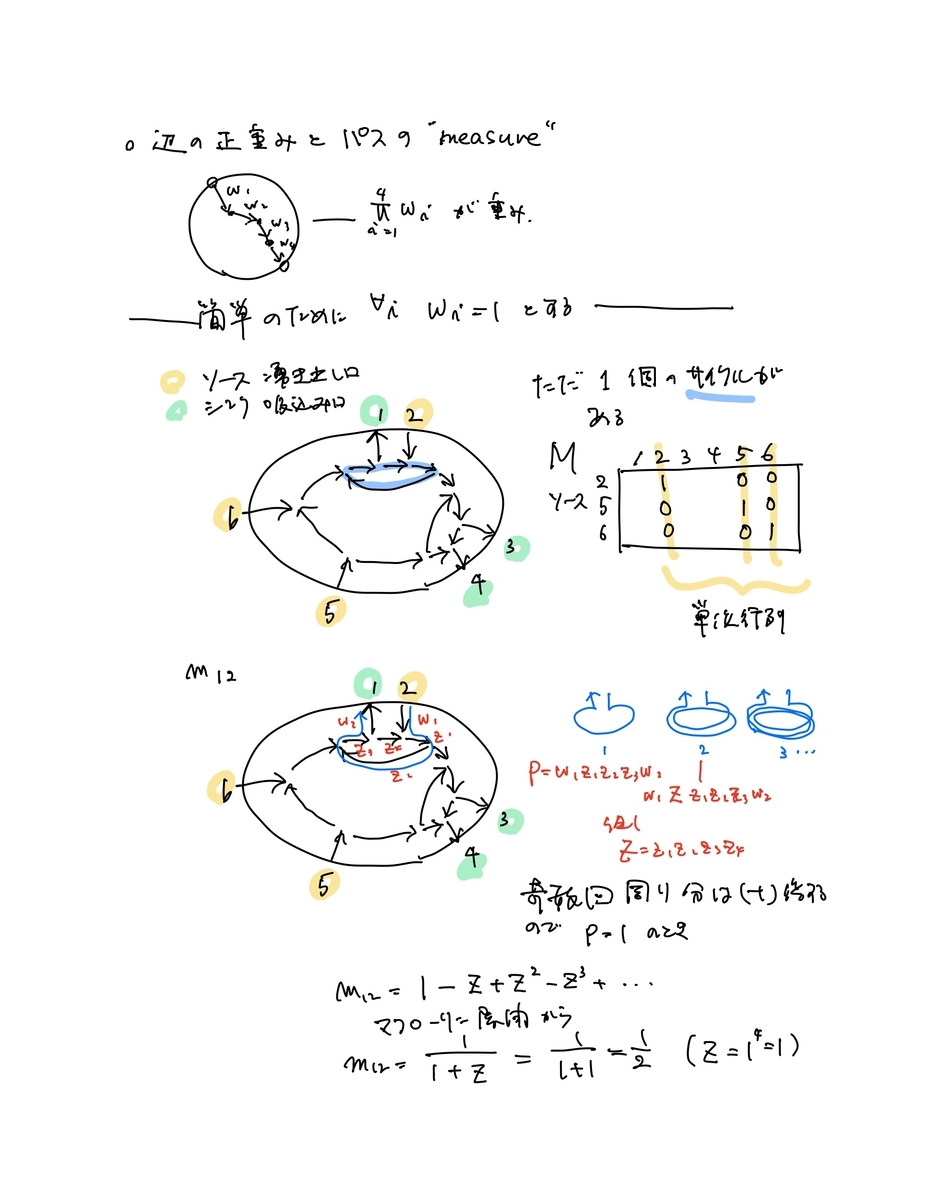 o 辺の正重みとパスの "measure"
w1
w2
w3
w4
4
∏ wi が重み.
i=1
簡単のために ∀i wi=1 とする
ソース 湧き出し口
シンク 吸込み口
1 2
6
3
4
5
ただ1個のサイクルが
ある
M 1 2 3 4 5 6
2 1 0 0
ソース 5 0 1 0
6 0 0 1
単位行列
m12
1 2
w2 w1
z3 z4 z1
z2
6
3
4
5
1 2 3 ...
P=w1z1z2z3w2
w1 Z z1z2z3w2
但し
Z=z1z2z3z4
奇数回周り分は(-1)倍する
ので P=1 のとき
m12 = 1 - Z + Z² - Z³ + ...
マクローリン展開から
m12 = 1/(1+Z) = 1/(1+1) = 1/2 (Z=1⁴=1)